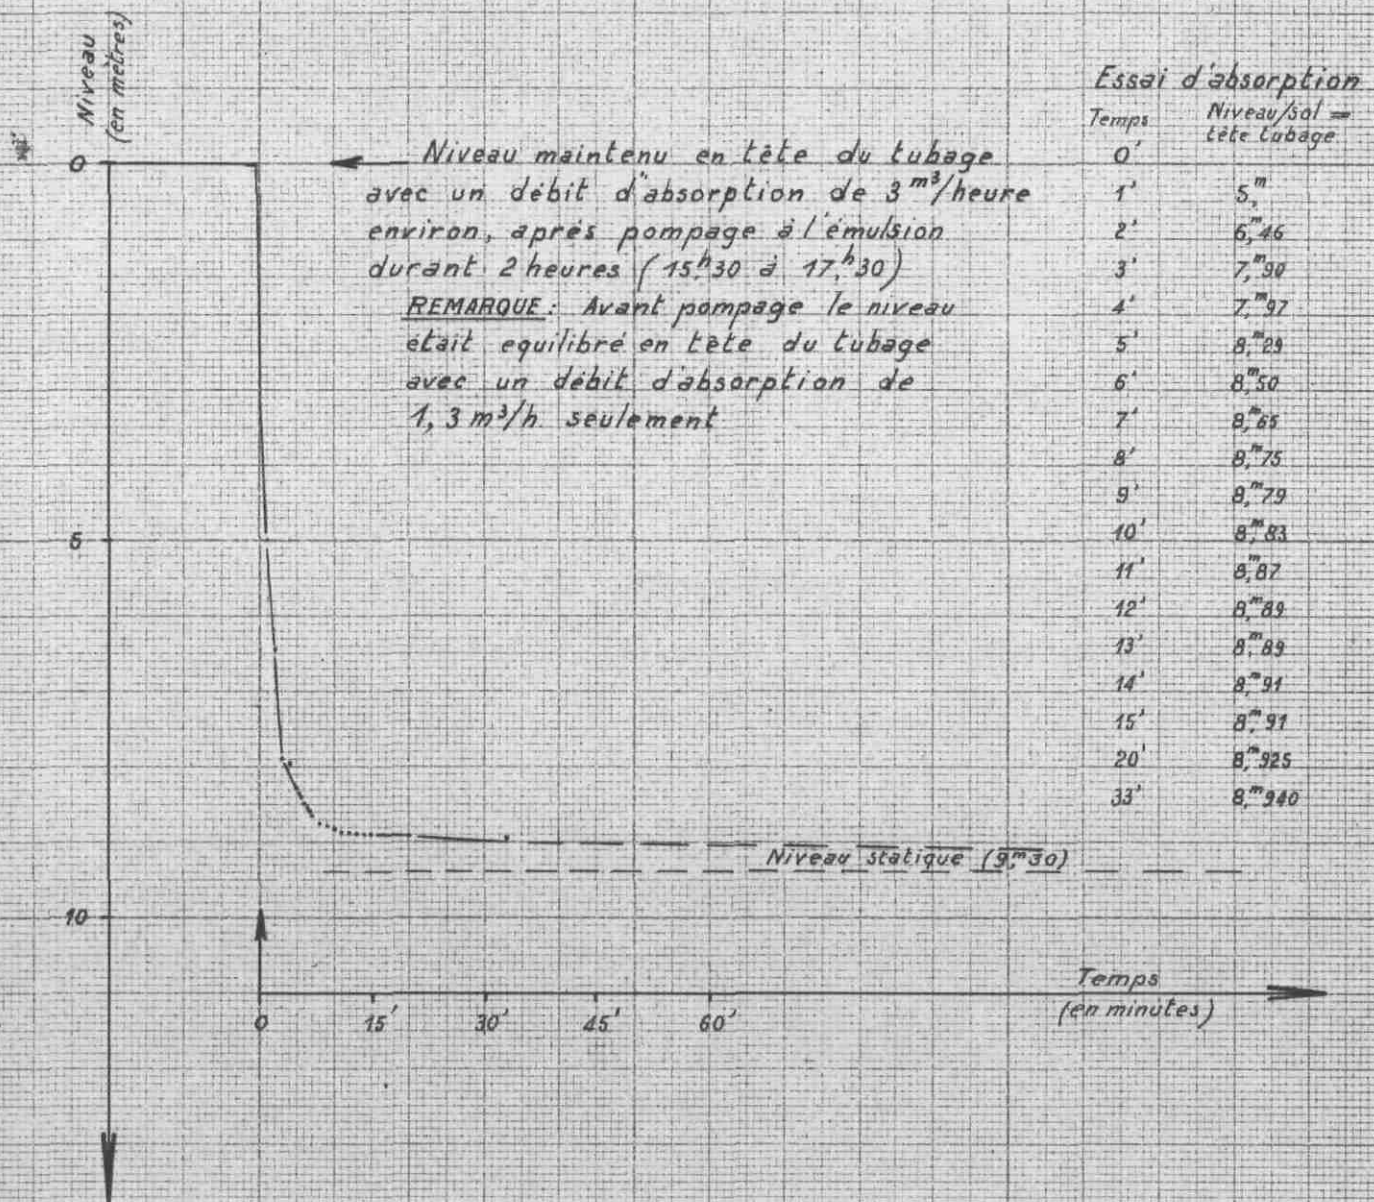 Niveau
(en mètres)
0
5
10
Niveau maintenu en tête du tubage
avec un débit d'absorption de 3 m³/heure
environ, après pompage à l'émulsion
durant 2 heures (15,h30 à 17,h30)
REMARQUE: Avant pompage le niveau
était equilibré en tête du tubage
avec un débit d'absorption de
1,3 m³/h seulement
Essai d'absorption
Temps Niveau/sol =
tête tubage
0'
1' 5,m
2' 6,m46
3' 7,m90
4' 7,m97
5' 8,m29
6' 8,m50
7' 8,m65
8' 8,m75
9' 8,m79
10' 8,m83
11' 8,m87
12' 8,m89
13' 8,m89
14' 8,m91
15' 8,m91
20' 8,m925
33' 8,m940
Niveau statique (9,m30)
Temps
(en minutes)
0 15' 30' 45' 60'